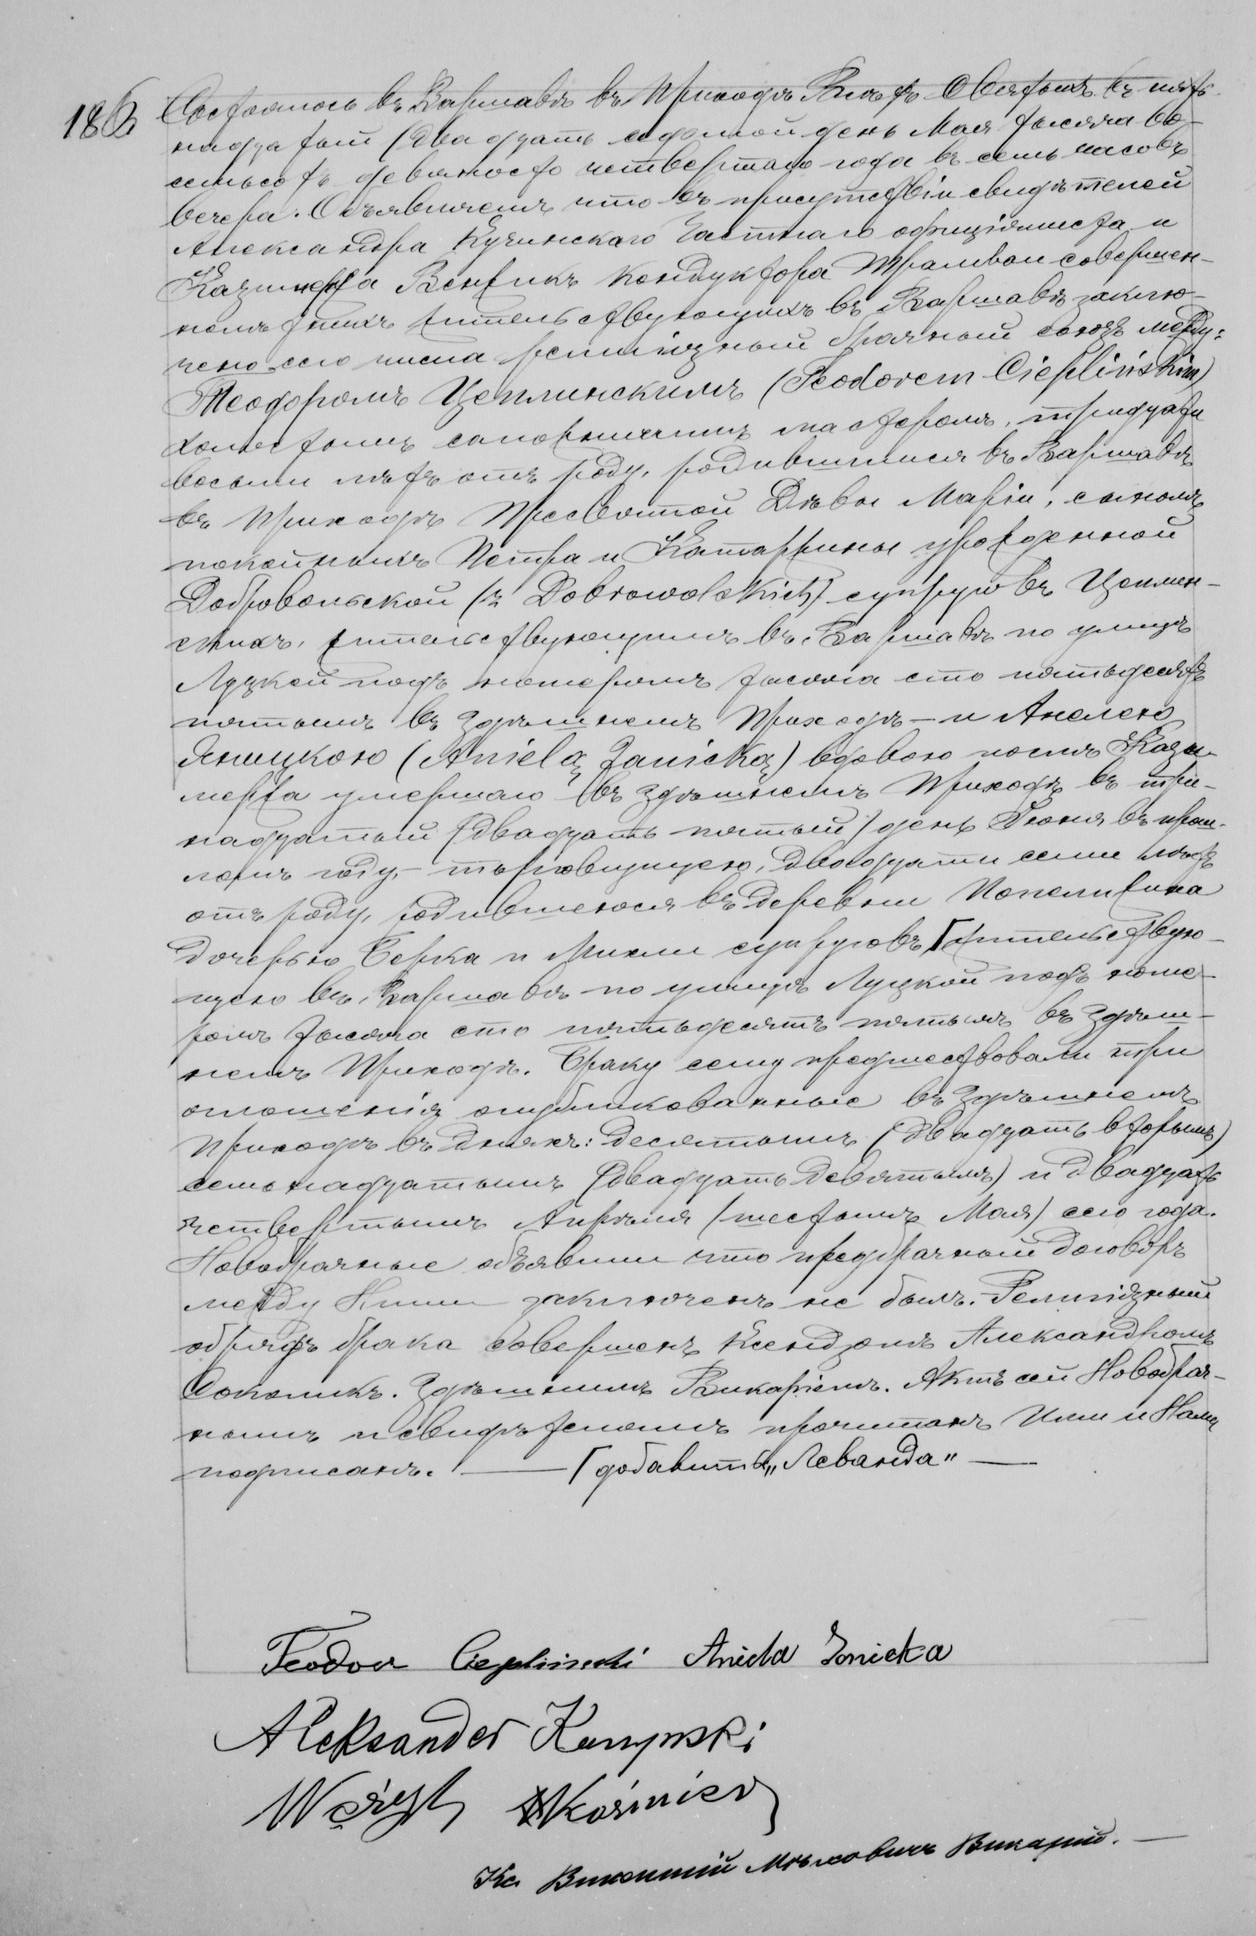 186.
Состоялось въ Варшавѣ въ Приходѣ Всѣхъ Святыхъ въ пят-
надцатый (двадцать седьмой день Мая тысяча во-
семьсотъ девяносто четвертаго года въ семь часовъ
вечера. Объявляемъ что въ присутствіи свидѣтелей
Александра Кучинскаго Частнаго официялиста и
Казимера Венжикъ кондуктора Трамваи совершен-
нолѣтнихъ жительствующихъ въ Варшавѣ заклю-
чено сего числа религіозный брачный союзъ между:
Теодоромъ Цеплинскимъ (Teodorem Cieplińskim)
холостымъ сапожничимъ мастеромъ, тридцати
восьми лѣтъ отъ роду, родившимся въ Варшавѣ
въ Приходѣ Пресвятой Дѣвы Маріи, сыномъ
покойныхъ Петра и Катаржины урожденной
Добровольской (z Dobrowolskich) супруговъ Цеплин-
скихъ, жительствующимъ въ Варшавѣ по улицѣ
Луцкой подъ номеромъ тысяча сто пятьдесятъ
пятымъ въ здѣшнемъ Приходѣ — и Анелею
Яницкою (Anielą Janicką) вдовою послѣ Кази-
мержа умершаго въ здѣшнемъ Приходѣ въ три-
надцатый (двадцать пятый) день Іюня въ прош-
ломъ году, — торговщицею, двадцати семи лѣтъ
отъ роду, родившеюся въ деревни
дочерью Берка и Михли супруговъ, ⌈жительствую-
щею въ Варшавѣ по улицѣ Луцкой подъ номе-
ромъ тысяча сто пятьдесятъ пятымъ въ здѣш-
немъ Приходѣ. Браку сему предшествовали три
оглошенія опубликованные въ здѣшнемъ
Приходѣ въ дняхъ: десятымъ (двадцать вторымъ)
семьнадцатымъ (двадцать девятымъ) и двадцать
четвертымъ Апрѣля (шестымъ Мая) сего года.
Новобрачные объявили что предбрачный договоръ
между Ними заключенъ не былъ. Религіозный
обрядъ брака совершенъ Ксендзомъ Александромъ
здѣшнимъ Викаріемъ. Актъ сей Новобрач-
нымъ и свидѣтелямъ прочитанъ Ими и Нами
подписанъ. — ⌈добавить „Леванда" —
Teodor Ciepliński Aniela Janicka
Aleksander
Wężyk Kaźmierz
Кс. Викарій. —